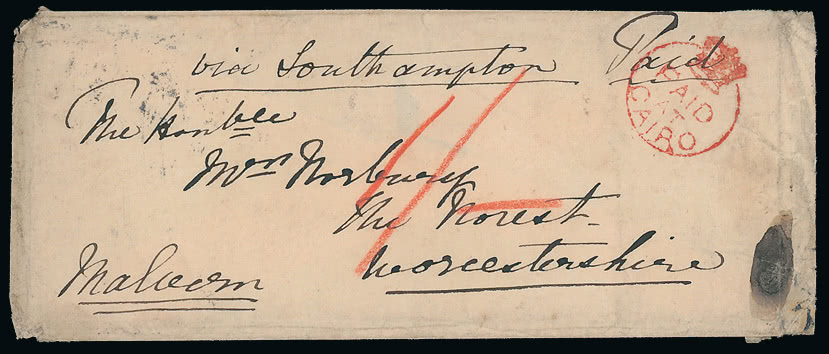 via Southampton Paid
PAID
AT
CAIRO
The Honble
Mrs Norbury
1/-
The Norest
Worcestershire
Malvern